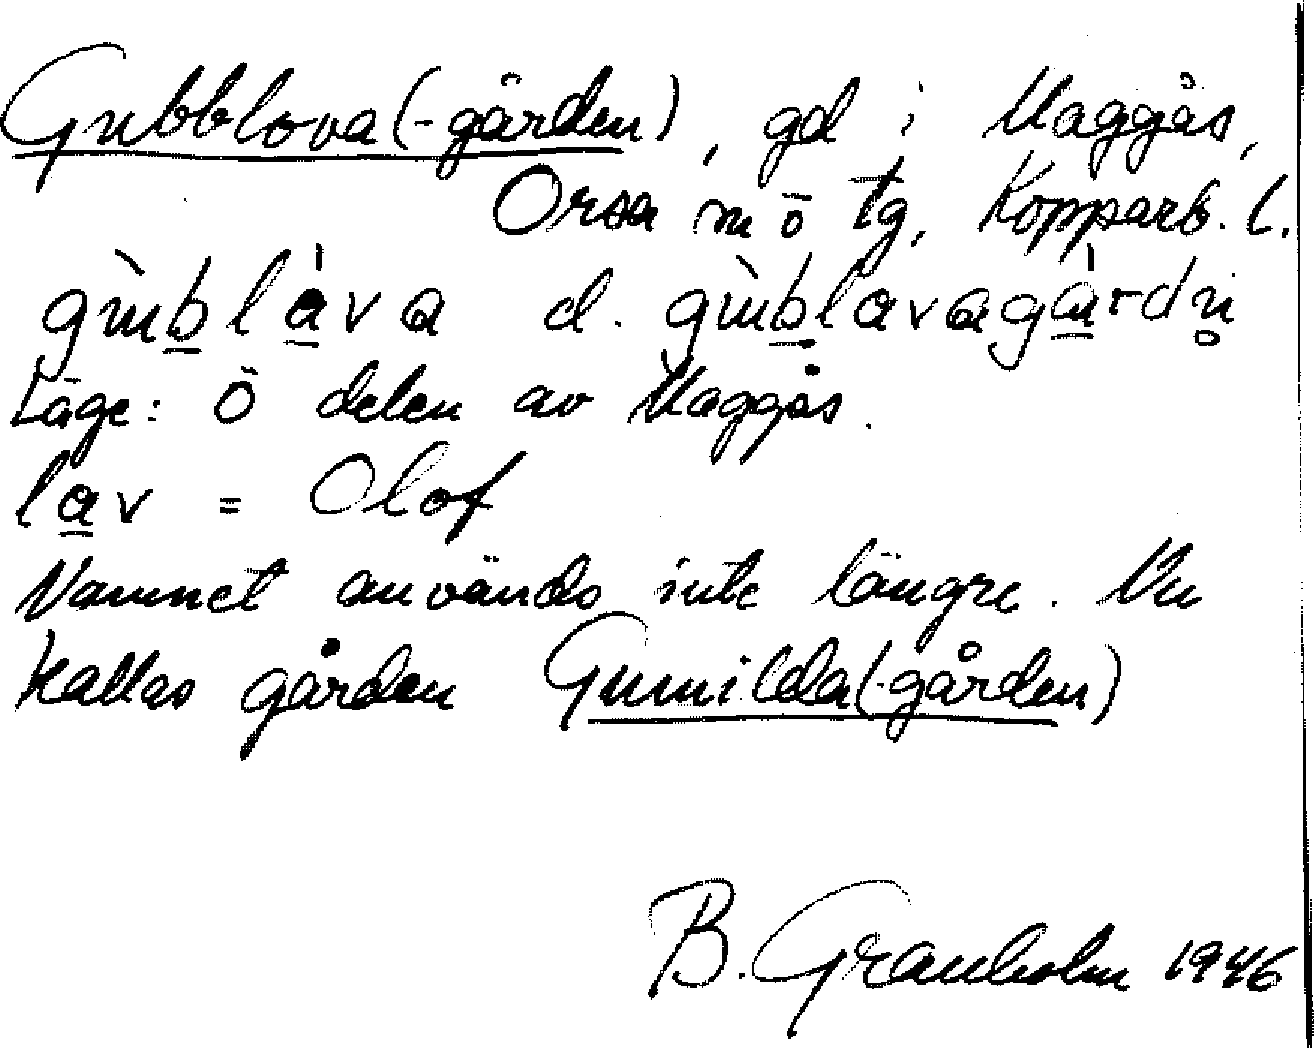 Gubblova(-gården), gd i Maggås,
Orsa sn o tg, Kopparb. l.
gùb̲là̲va el. gùb̲lavagà̲rdn̥
Läge: Ö delen av Maggås.
la̲v = Olof
Namnet används inte längre. Nu
kallas gården Gunilda(-gården)
B. Granholm 1946